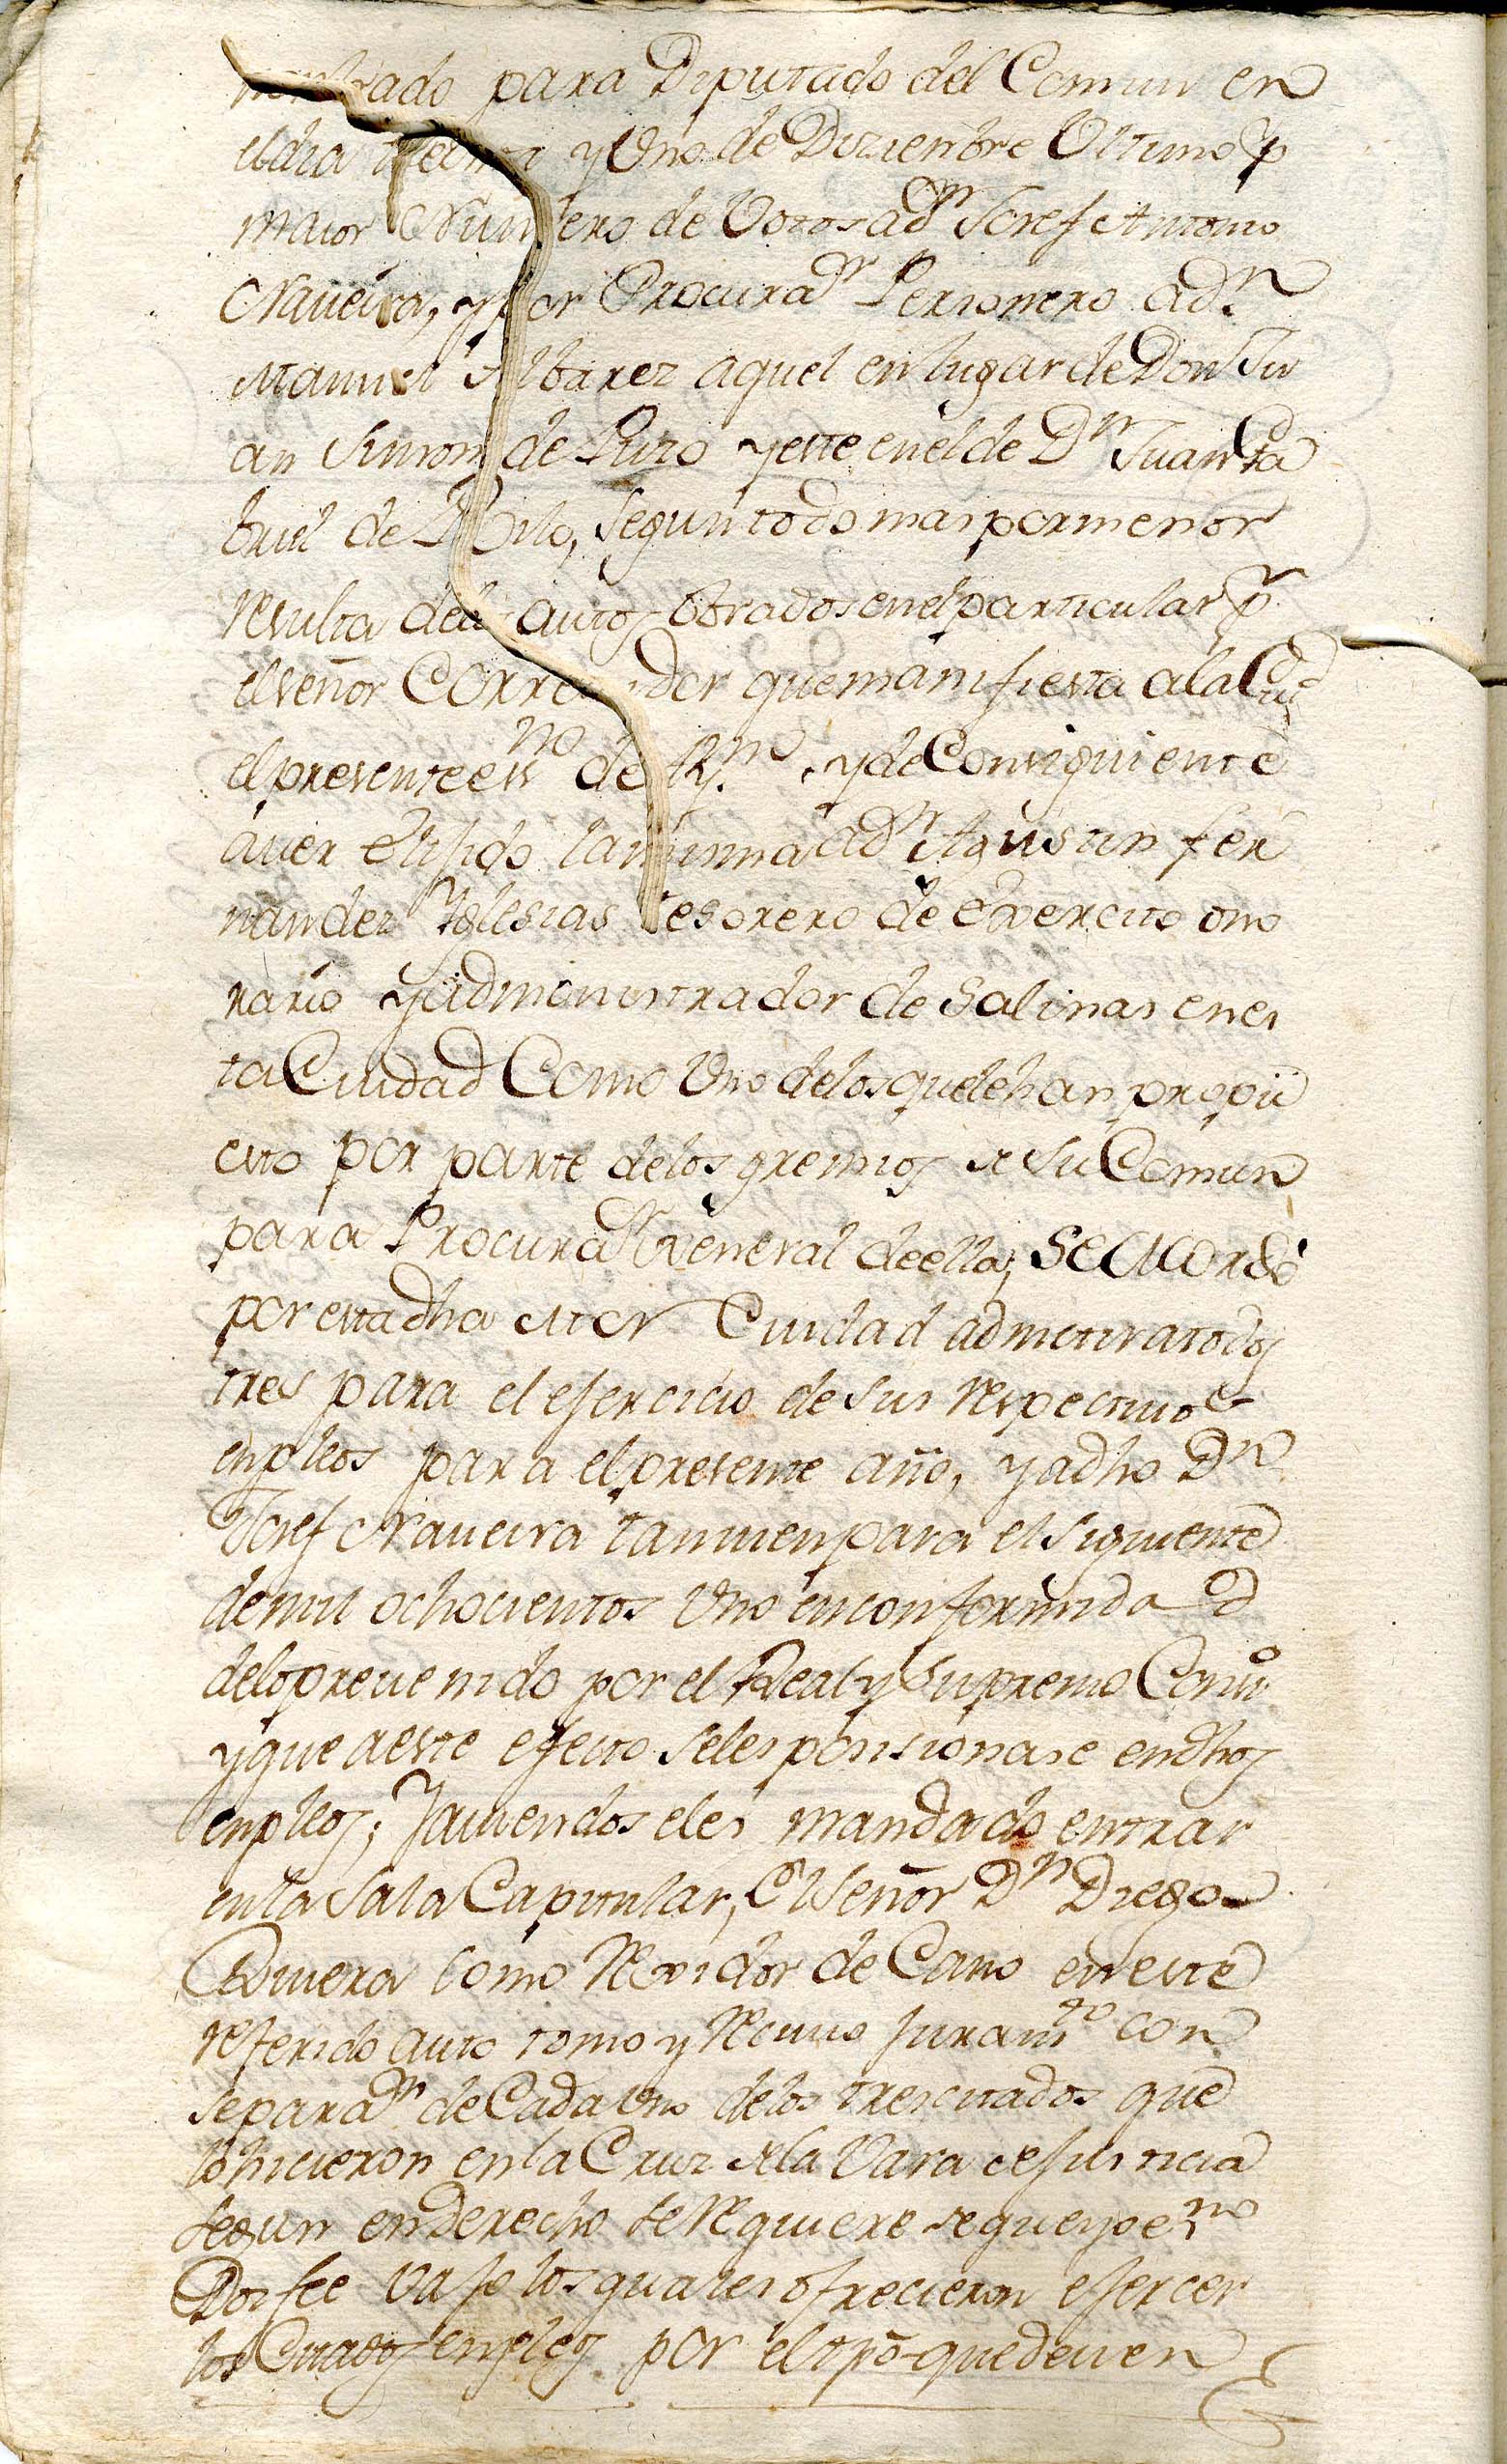 nombrado para Diputado del Comun en
el dia treinta y Uno de Diziembre Ultimo p
maior Numero de Votos a dn Josef Antonio
Naueira, y por Procurador Personero a dn
Manuel Albarez aquel en lugar de Don Ju
an Simon de Puzo y este en el de Dn Juan Ga
briel de Dilo, segun todo mas por menor
resulta delos autos obrados en el particular p.
el señor Corregidor que manifiesta ala Ciud
el presente essno de Ayno. y de Consiguiente
áuer elijido la misma a dn Agustin fer
nandez Yglesias tesorero de Exercito ono
rario y administrador de Salinas en es
ta Ciudad Como Uno delos que le han propu
esto por parte delos gremios de su Comun
para Procurador General de ella; Se acordó
por esta dha M N Ciudad admitir a todos
tres para el ejercicio de sus respectiuos
enpleos para el presente año, y a dho Dn
Josef Naueira tamuien para el siguiente
de mil ochocientos Uno en conformidad
delo preuenido por el Real y Supremo Conso
y que a este efecto seles posesionase en dhos
enpleos; Y auiendoseles mandado entrar
en la sala Capitular, el Señor Dn Diego
Riuera como Rexidor de Cano en este
referido auto tomo y reciuio juramto con
separan de Cada Uno delos tres citados que
lo hicieron en la Cruz dela Vara de Justicia
segun en Derecho se requiere de que yo esno
Doi fee vajo los quales ofrecieron ejercer
los Citados enpleos por el tpo que deuen